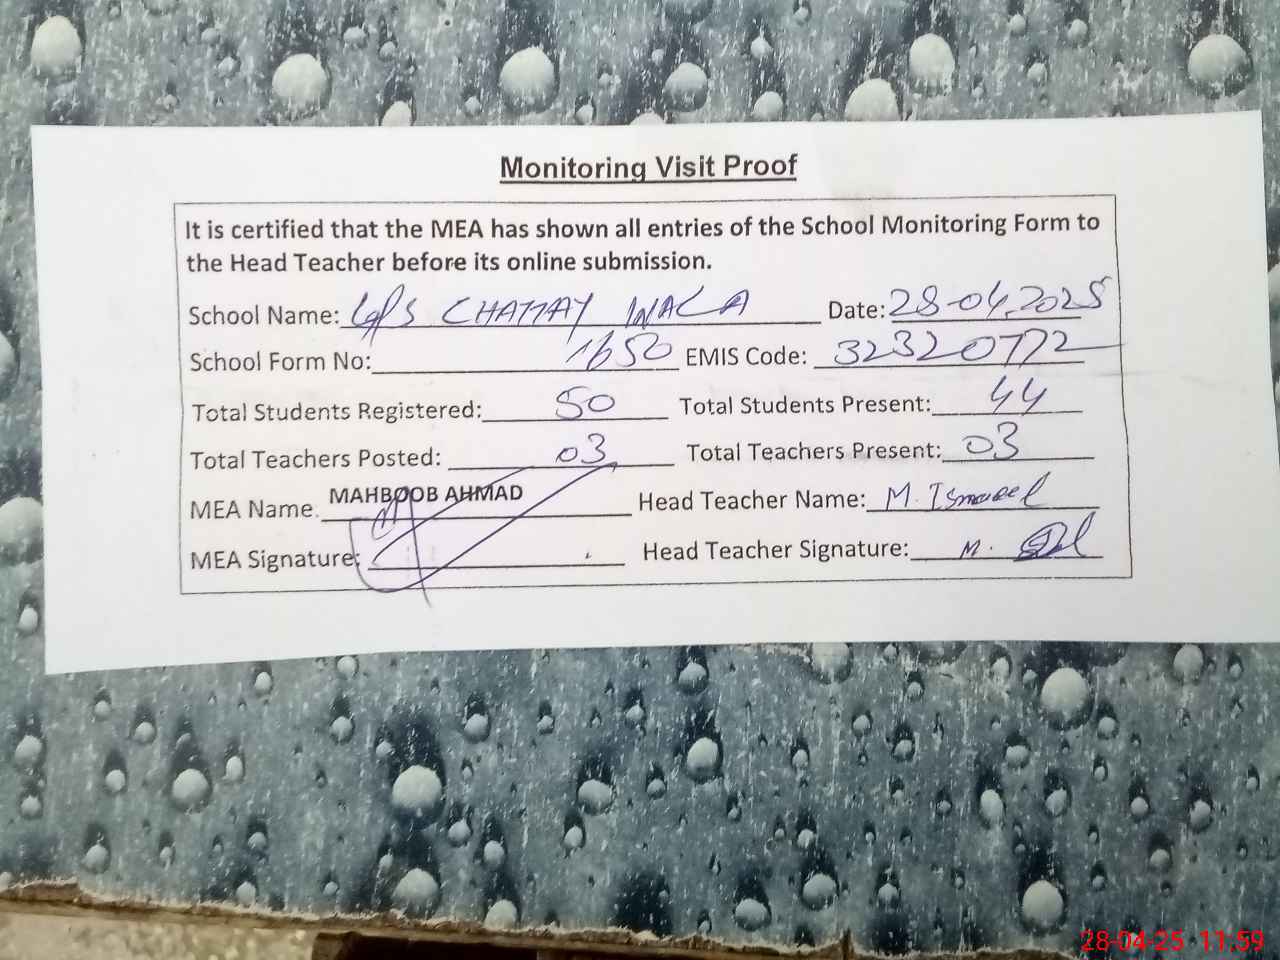 Monitoring Visit Proof
It is certified that the MEA has shown all entries of the School Monitoring Form to
the Head Teacher before its online submission.
School Name: GPS CHATTAY WALA Date: 28-04.2025
School Form No: 1650 EMIS Code: 32320772
Total Students Registered: 50 Total Students Present: 44
Total Teachers Posted: 03 Total Teachers Present: 03
MEA Name. MAHBOOB AHMAD Head Teacher Name: M. Ismaeel
MEA Signature: Head Teacher Signature: M.
28-04-25 11:59